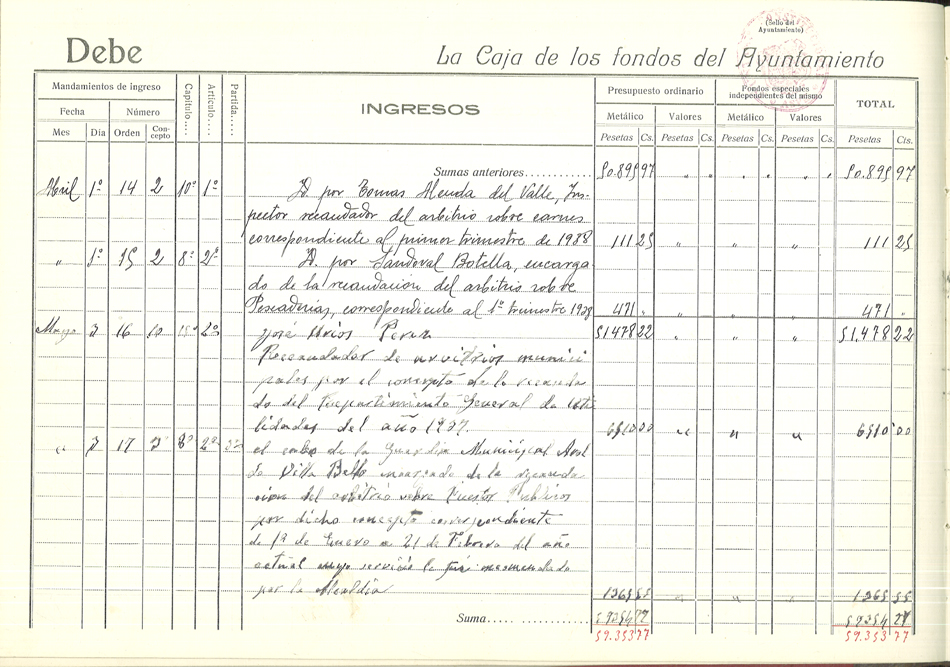 (Sello del Ayuntamiento)
Debe
La Caja de los fondos del Ayuntamiento
Mandamientos de ingreso
Fecha Número
Mes Día Orden Concepto
Capítulo.... Artículo.... Partida.....
INGRESOS
Presupuesto ordinario
Metálico Valores
Pesetas Cs. Pesetas Cs.
Fondos especiales independientes del mismo
Metálico Valores
Pesetas Cs. Pesetas Cs.
TOTAL
Pesetas Cts.
Sumas anteriores............ 50.899 97 " " " " " " 50.899 97
Abril 1º 14 2 10º 1º D. por Tomas del Valle, Ins-
pector recaudador del arbitrio sobre carnes
correspondiente al primer trimestre de 1938 111 25 " " " 111 25
" 1º 15 2 8º 2º D. por Sandoval Botella, encarga-
do de la recaudacion del arbitrio sobre
Pescaderias, correspondiente al 1º trimestre 1938 471 " " " " 471 "
Mayo 3 16 10 2º José Perez 51.478 22 " " " 51.478 22
Recaudador de arvitrios munici
pales por el concepto de la recauda
do del Repartimiento General de Uti
lidades del año 1937. 6510 00 " " " 6510 00
" 3 17 3 8º 2º el cabo de la Guardia Municipal
Villa Bello encargado de la recauda-
cion del arbitrio sobre Puestos Publicos
por dicho concepto correspondiente
de 1º de Enero a 21 de Febrero del año
actual cuyo servicio le fue encomendado
por la Alcaldia 1365 55 " " " 1365 55
Suma..... ............... 59354 77 59354 77
59.353 77 59.353 77